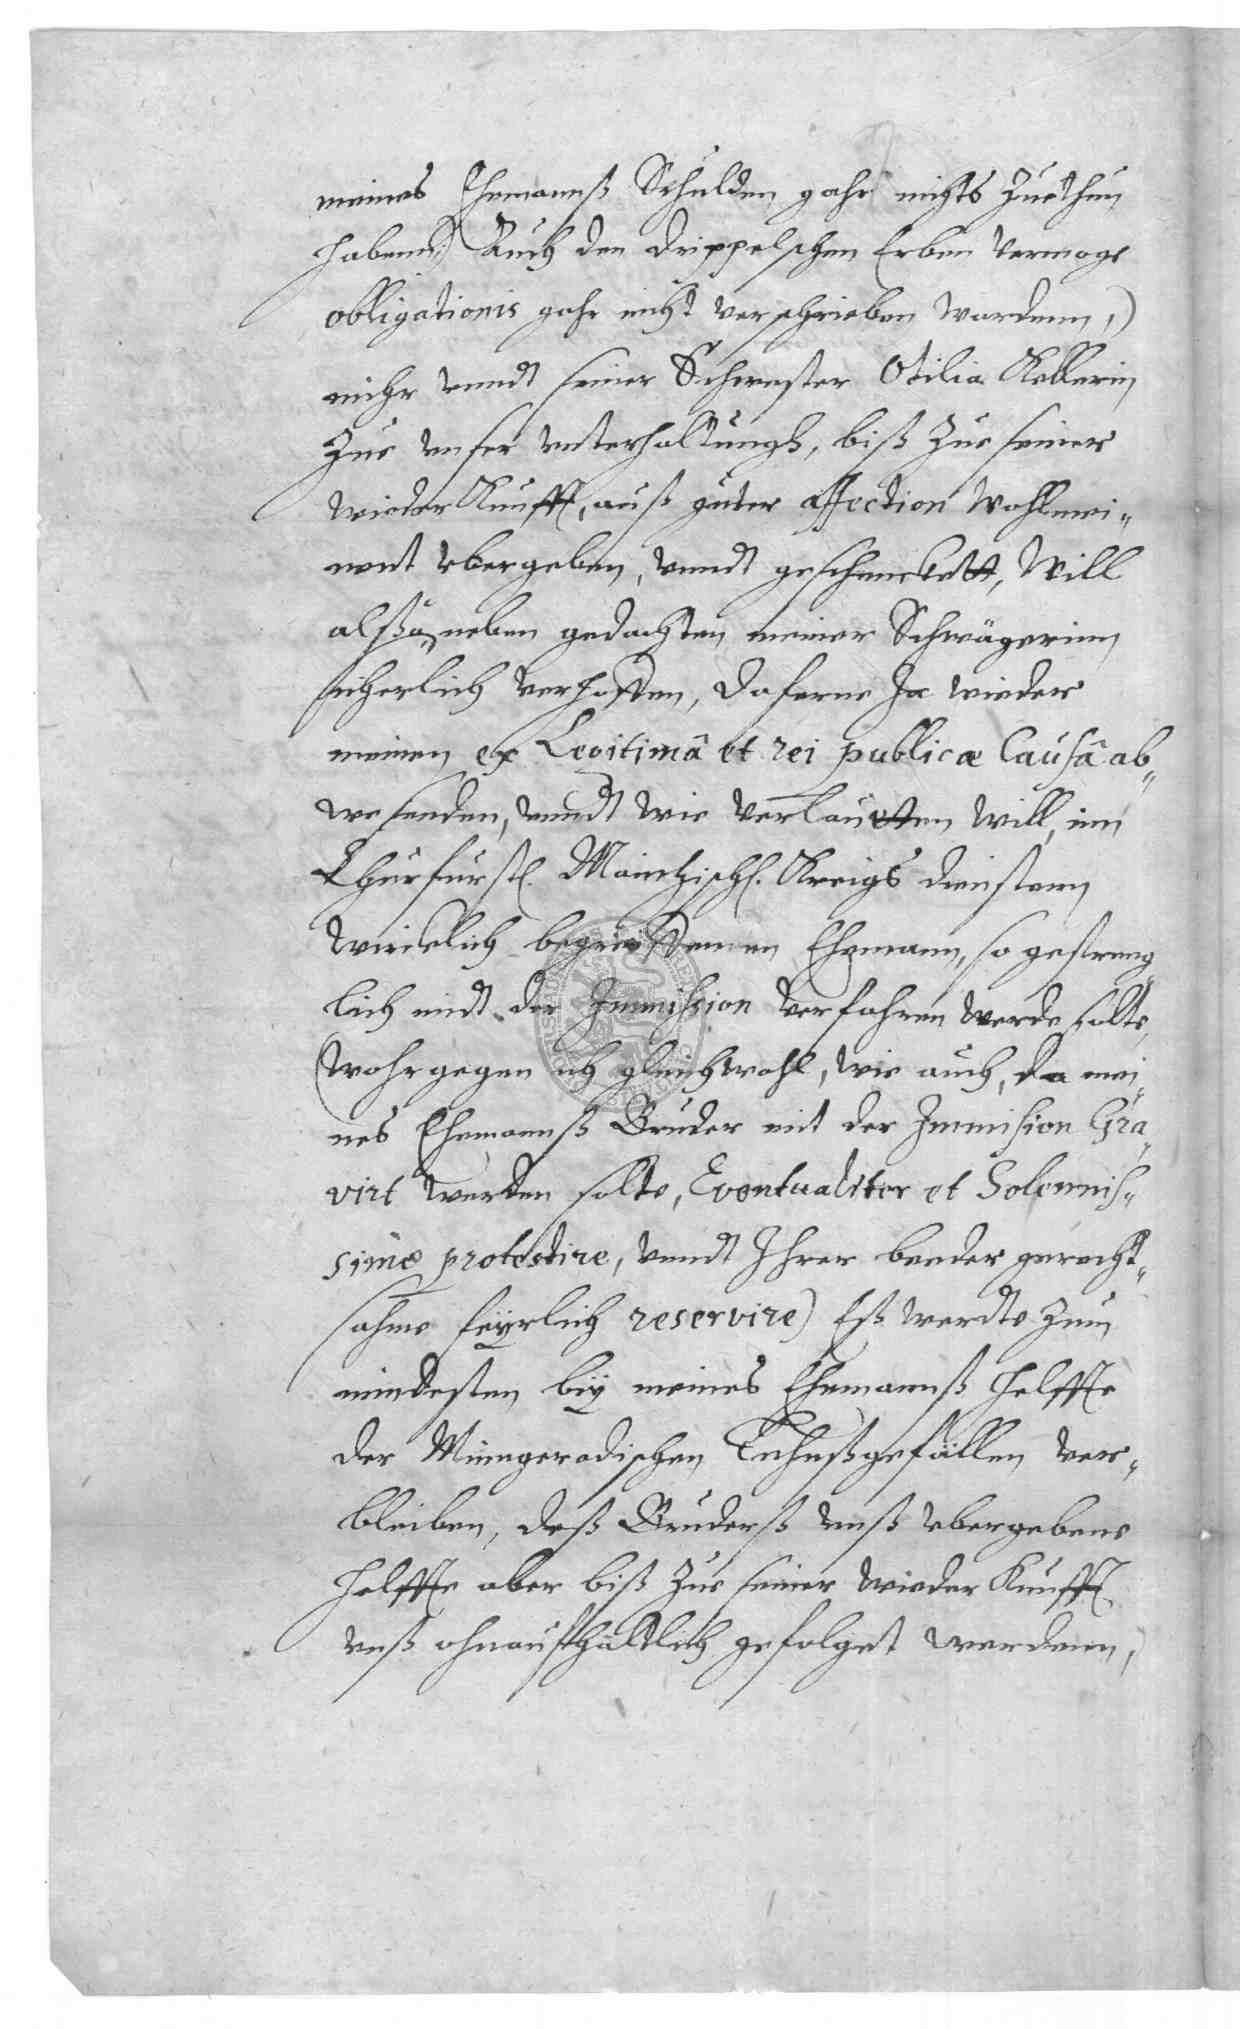 meines Ehemannß Schulden gahr nichts Zue thun
habenn,) Auch den Drippelschen Erben vermoge
obligationis gahr nicht verschrieben wordenn,)
mihr vnndt seiner Schwester Otilia Kellerin
Zue vnser vnterhaltungk, biß Zue seiner
wieder Kunfft, auß guter affection wohlmei„
nent vbergeben, vnndt geschencktt, Will
alßo neben gedachten meiner Schwägerinn
sicherlich verhoffen, daferne Ja wieder
meinen ex Legitimâ et rei publicæ Causâ ab„
wesenden, vnndt wie verlautten will, inn
Churfürstl. Maintzischl. Kreigs dienstenn
würcklich begrieffenen Ehemann, so gestreng
lich midt der Immission verfahren werde solte,
(wohrgegen ich gleichwohl, wie auch, da mei„
nes Ehemannß Bruder mit der Immision Gra„
virt werden solte, Eventualiter et Solennis„
simè protestire, vnndt Ihrer beeder gerecht„
sahme feyrlich reservire) Eß werdte Zum
mindesten bey meines Ehemannß Helffte
der Minngerodischen Lehnßgefällen ver„
bleiben, deß Bruderß vnß vbergebene
Helffte aber biß Zue seiner wieder Kunfft
vnß ohnaufhältlich gefolget werdenn,